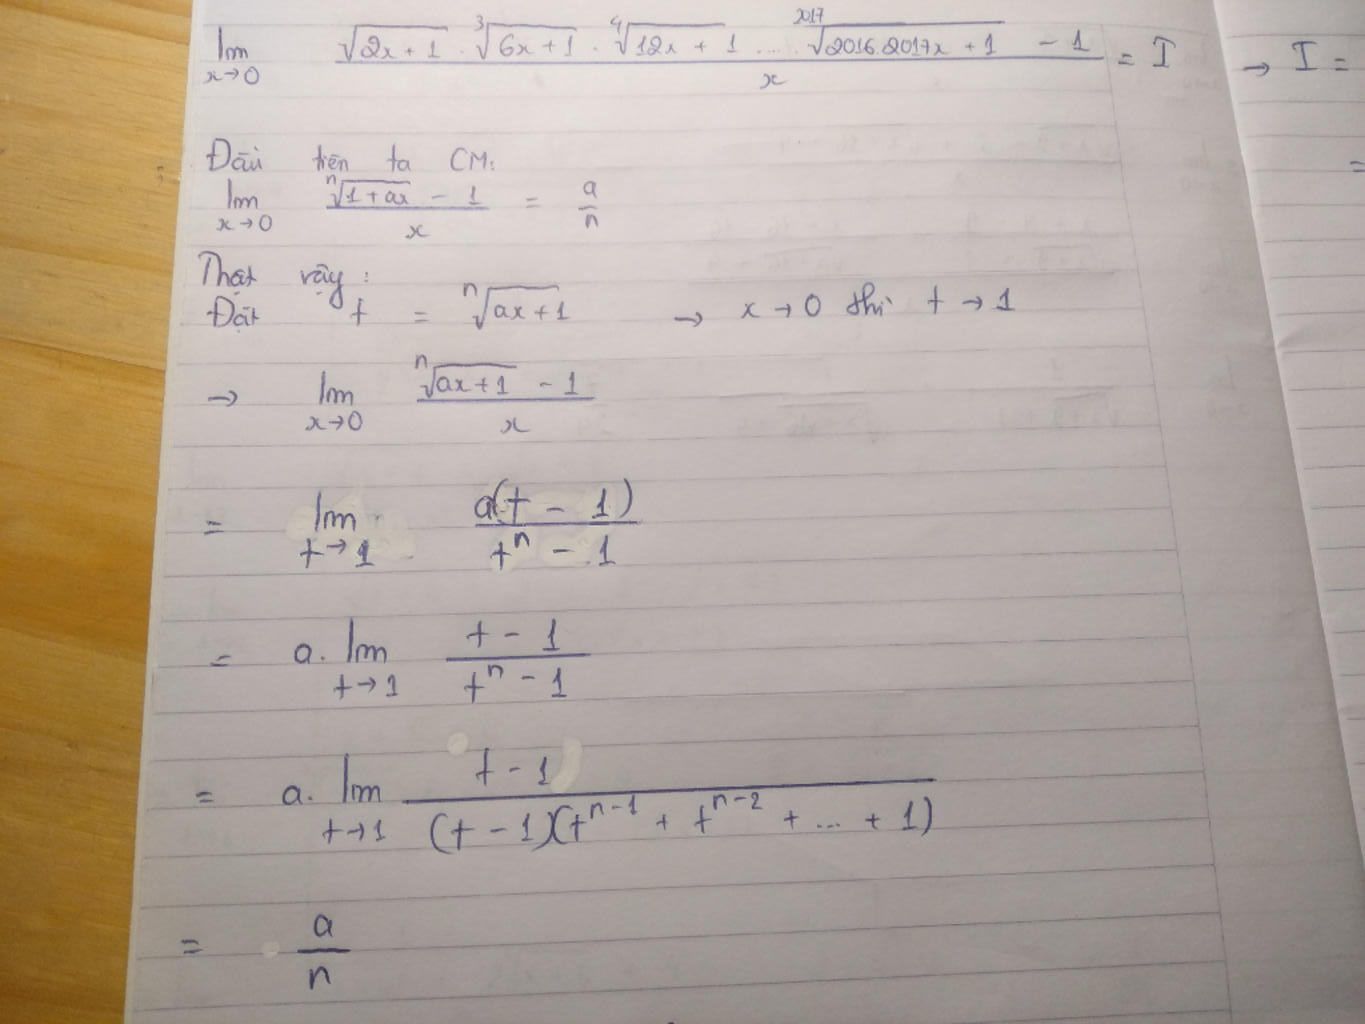 lim x→0 (√(2x+1) . ³√(6x+1) . ⁴√(12x+1) .... ²⁰¹⁷√(2016.2017x+1) - 1) / x = I → I =
Đầu tiên ta CM:
lim x→0 (ⁿ√(1+ax) - 1) / x = a/n =
Thật vậy:
Đặt t = ⁿ√(ax+1) → x→0 thì t→1
→ lim x→0 (ⁿ√(ax+1) - 1) / x
= lim t→1 a(t - 1) / (tⁿ - 1)
= a. lim t→1 (t - 1) / (tⁿ - 1)
= a. lim t→1 (t - 1) / ((t - 1)(tⁿ⁻¹ + tⁿ⁻² + ... + 1))
= a/n